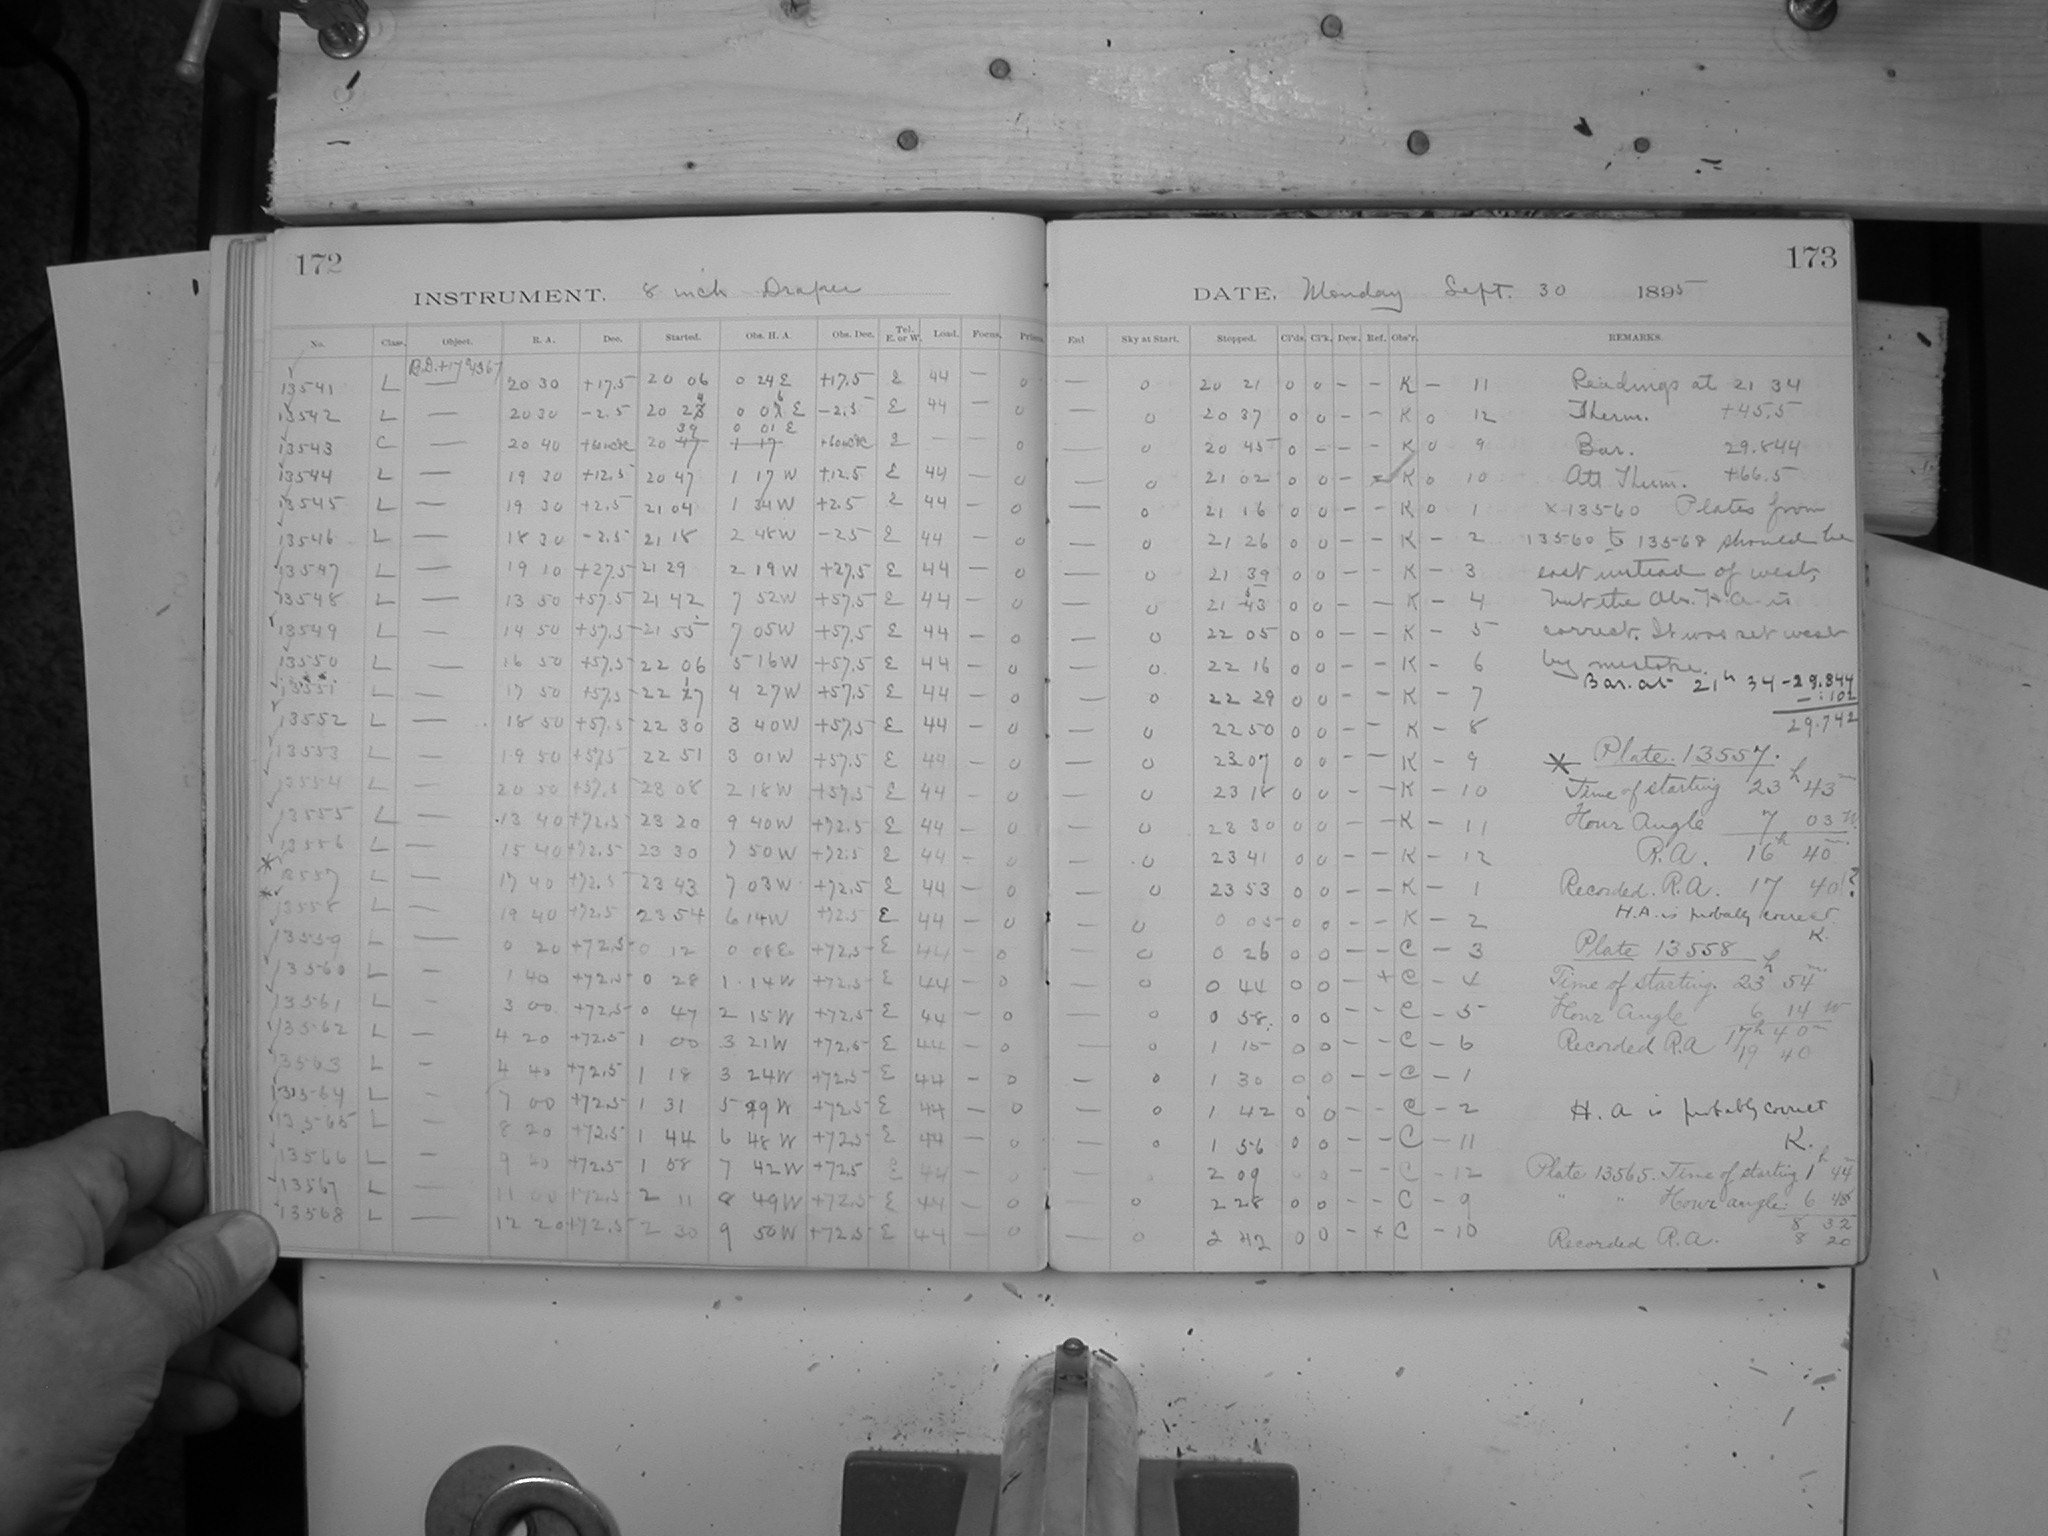 172
INSTRUMENT. 8 inch Draper
No. Class. Object. R. A. Dec. Started. Obs. H. A. Obs. Dec. Tel. E. or W. Load. Focus. Prism
B.D.+17°4367
13541 L — 20 30 +17.5 20 06 0 24 E +17.5 E 44 — 0
13542 L — 20 30 -2.5 20 29 0 06 E -2.5 E 44 — 0
13543 C — 20 40 20 39 0 01 E E — — 0
13544 L — 19 30 +12.5 20 47 1 17 W +12.5 E 44 — 0
13545 L — 19 30 +2.5 21 04 1 34 W +2.5 E 44 — 0
13546 L — 18 30 -2.5 21 18 2 48 W -2.5 E 44 — 0
13547 L — 19 10 +27.5 21 29 2 19 W +27.5 E 44 — 0
13548 L — 13 50 +57.5 21 42 7 52 W +57.5 E 44 — 0
13549 L — 14 50 +57.5 21 55 7 05 W +57.5 E 44 — 0
13550 L — 16 50 +57.5 22 06 5 16 W +57.5 E 44 — 0
13551 L — 17 50 +57.5 22 17 4 27 W +57.5 E 44 — 0
13552 L — 18 50 +57.5 22 30 3 40 W +57.5 E 44 — 0
13553 L — 19 50 +57.5 22 51 3 01 W +57.5 E 44 — 0
13554 L — 20 50 +57.5 23 08 2 18 W +57.5 E 44 — 0
13555 L — 13 40 +72.5 23 20 9 40 W +72.5 E 44 — 0
13556 L — 15 40 +72.5 23 30 7 50 W +72.5 E 44 — 0
* 13557 L — 17 40 +72.5 23 43 7 03 W +72.5 E 44 — 0
* 13558 L — 19 40 +72.5 23 54 6 14 W +72.5 E 44 — 0
13559 L — 0 20 +72.5 0 12 0 08 E +72.5 E 44 — 0
13560 L — 1 40 +72.5 0 28 1 14 W +72.5 E 44 — 0
13561 L — 3 00 +72.5 0 47 2 15 W +72.5 E 44 — 0
13562 L — 4 20 +72.5 1 00 3 21 W +72.5 E 44 — 0
13563 L — 4 40 +72.5 1 18 3 24 W +72.5 E 44 — 0
13564 L — 7 00 +72.5 1 31 5 29 W +72.5 E 44 — 0
13565 L — 8 20 +72.5 1 44 6 48 W +72.5 E 44 — 0
13566 L — 9 40 +72.5 1 58 7 42 W +72.5 E 44 — 0
13567 L — 11 00 +72.5 2 11 8 49 W +72.5 E 44 — 0
13568 L — 12 20 +72.5 2 30 9 50 W +72.5 E 44 — 0
173
DATE, Monday Sept. 30 1895
End Sky at Start. Stopped. Cl'ds. Cl'k. Dew. Ref. Obs'r. REMARKS.
— 0 20 21 0 0 – – K – 11 Readings at 21 34
— 0 20 37 0 0 – – K 0 12 Therm. +45.5
— 0 20 45 0 – – – K 0 9 Bar. 29.844
— 0 21 02 0 0 – K 0 10 Att Therm. +66.5
— 0 21 16 0 0 – – K 0 1 × 13560 Plates from
— 0 21 26 0 0 – – K – 2 13560 to 13568 should be
— 0 21 39 0 0 – – K – 3 east instead of west,
— 0 21 53 0 0 – – K – 4 but the Obs. H.A. is
— 0 22 05 0 0 – – K – 5 correct. It was set west
— 0 22 16 0 0 – – K – 6 by mistake.
Bar. at 21h 34 - 29.844
– .102
— 0 22 29 0 0 – – K – 7
— 0 22 50 0 0 – – K – 8 29.742
— 0 23 07 0 0 – – K – 9 * Plate 13557.
— 0 23 18 0 0 – – K – 10 Time of starting 23h 43m
— 0 23 30 0 0 – – K – 11 Hour Angle 7 03 W.
— 0 23 41 0 0 – – K – 12 R.A. 16h 40m
— 0 23 53 0 0 – – K – 1 Recorded. R.A. 17 40!?
H.A. is probably correct.
K.
— 0 0 05 0 0 – – K – 2
— 0 0 26 0 0 – – C – 3 Plate 13558
— 0 0 44 0 0 – + C – 4 Time of starting. 23h 54m
— 0 0 58 0 0 – – C – 5 Hour Angle 6 14 W
17h 40m
— 0 1 15 0 0 – – C – 6 Recorded R.A 19 40
— 0 1 30 0 0 – – C – 1
— 0 1 42 0 0 – – C – 2 H. A is probably correct
— 0 1 56 0 0 – – C – 11 K.
2 09 0 0 – – C – 12 Plate 13565. Time of starting 1h 44m
— 0 2 28 0 0 – – C – 9 " " Hour angle: 6 48
8 32
— 0 2 42 0 0 – + C – 10 Recorded R.A. 8 20